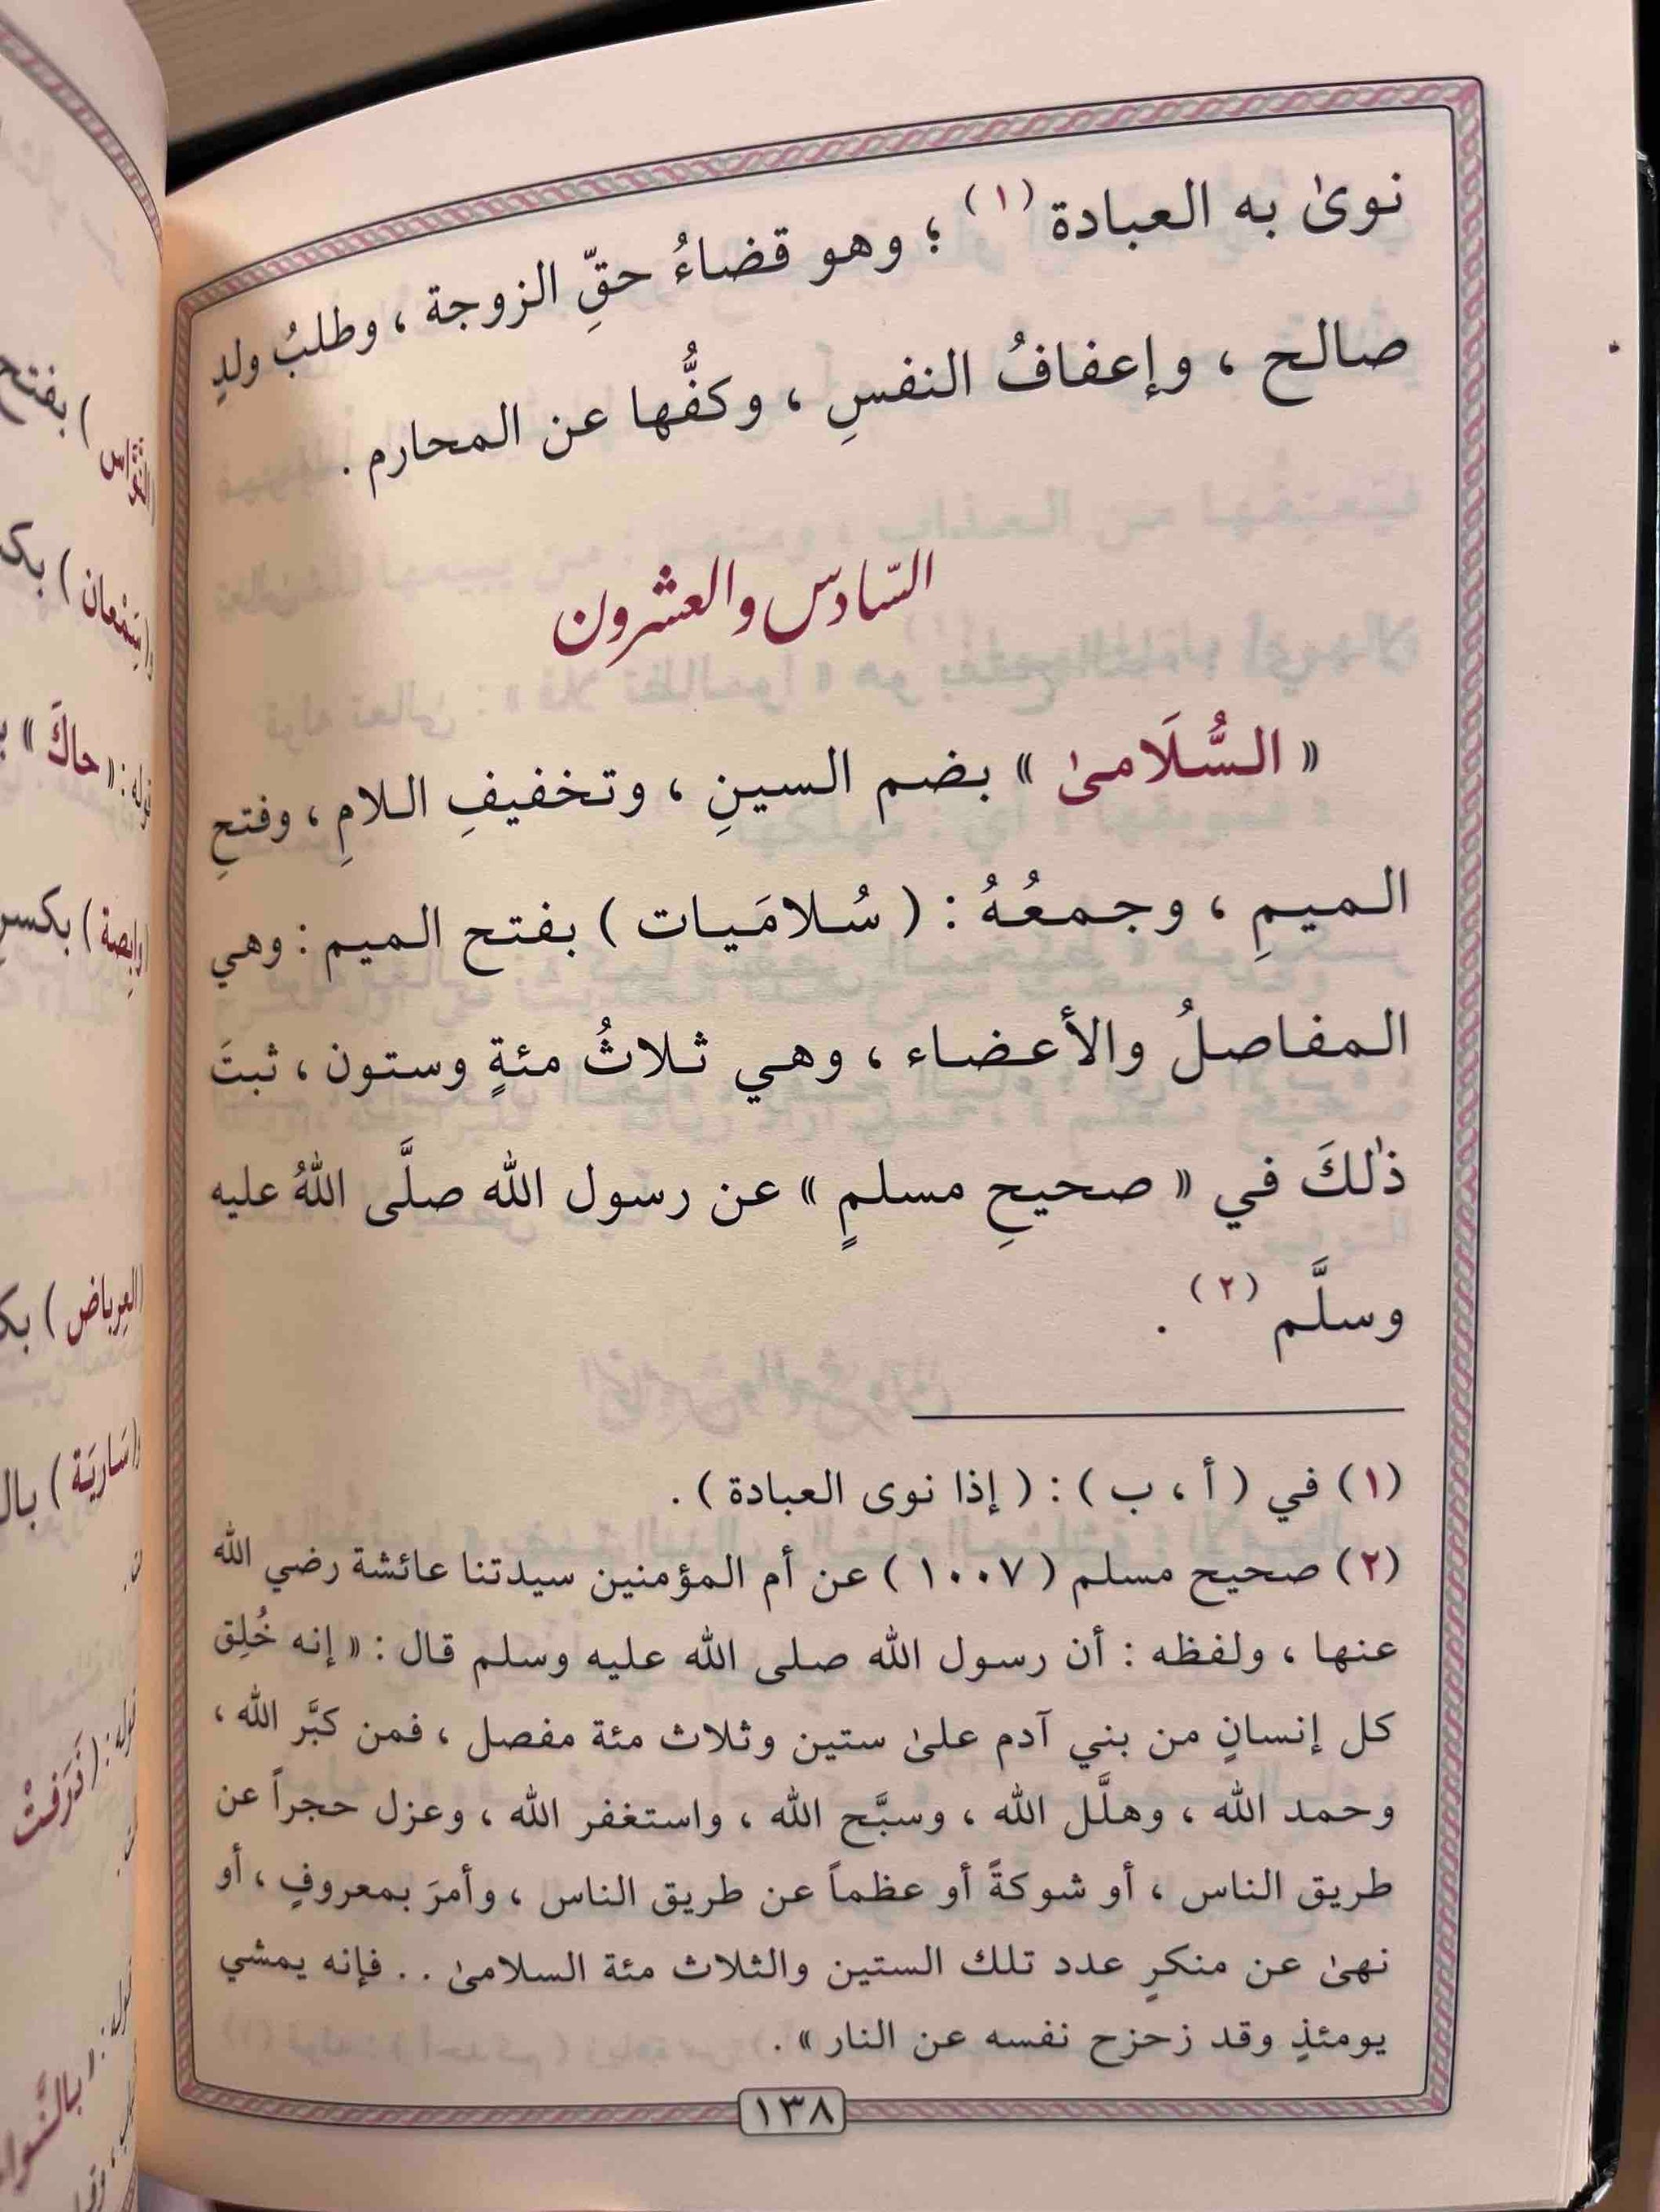 نوىٰ به العبادة (١) ؛ وهو قضاءُ حقِّ الزوجة ، وطلبُ ولدٍ
صالح ، وإعفافُ النفسِ ، وكفُّها عن المحارم .
السّادس والعشرون
« السُّلَامىٰ » بضم السينِ ، وتخفيفِ اللامِ ، وفتحِ
الميمِ ، وجمعُهُ : ( سُلامَيات ) بفتح الميم : وهي
المفاصلُ والأعضاء ، وهي ثلاثُ مئةٍ وستون ، ثبتَ
ذٰلكَ في « صحيحِ مسلمٍ » عن رسول الله صلَّى اللهُ عليه
وسلَّم (٢) .
(١) في ( أ ، ب ) : ( إذا نوى العبادة ) .
(٢) صحيح مسلم ( ١٠٠٧ ) عن أم المؤمنين سيدتنا عائشة رضي الله
عنها ، ولفظه : أن رسول الله صلى الله عليه وسلم قال : « إنه خُلِق
كل إنسانٍ من بني آدم علىٰ ستين وثلاث مئة مفصل ، فمن كبَّر الله ،
وحمد الله ، وهلَّل الله ، وسبَّح الله ، واستغفر الله ، وعزل حجراً عن
طريق الناس ، أو شوكةً أو عظماً عن طريق الناس ، وأمرَ بمعروفٍ ، أو
نهىٰ عن منكرٍ عدد تلك الستين والثلاث مئة السلامىٰ . . فإنه يمشي
يومئذٍ وقد زحزح نفسه عن النار » .
١٣٨
النَّوَّاس ) بفتح
و( سِمْعان ) بك
قوله : « حاكَ » ب
وابِصة ) بكسر
( العِرباض ) بك
و( سَارِيَة ) بال
قوله : ( ذَرَفتْ